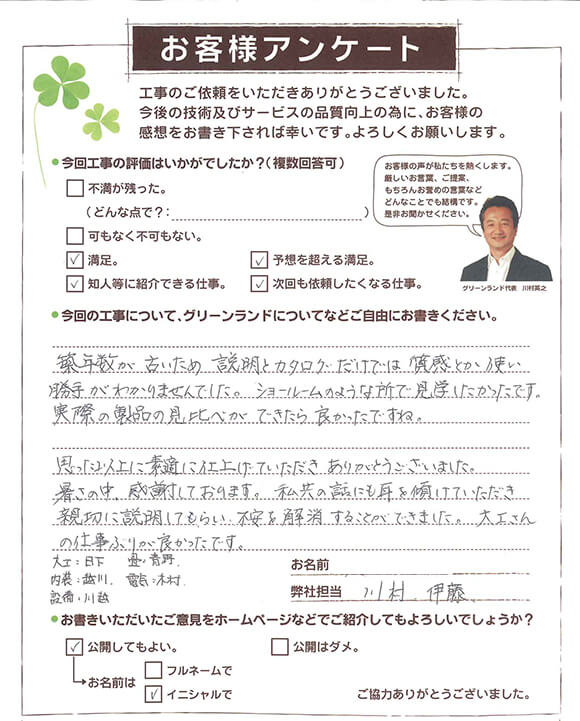 お客様アンケート
工事のご依頼をいただきありがとうございました。
今後の技術及びサービスの品質向上の為に、お客様の
感想をお書き下されば幸いです。よろしくお願いします。
今回工事の評価はいかがでしたか？（複数回答可）
不満が残った。
（どんな点で？：）
可もなく不可もない。
満足。
予想を超える満足。
知人等に紹介できる仕事。
次回も依頼したくなる仕事。
お客様の声が私たちを熱くします。
厳しいお言葉、ご提案、
もちろんお誉めの言葉など
どんなことでも結構です。
是非お聞かせください。
グリーンランド代表 川村英之
今回の工事について、グリーンランドについてなどご自由にお書きください。
築年数が古いため 説明とカタログだけでは 質感とか 使い
勝手がわかりませんでした。ショールームのような所で見学したかったです。
実際の製品の見比べができたら良かったですね。
思った以上に素適に仕上げていただき ありがとうございました。
暑さの中、感謝しております。私共の話にも耳を傾けていただき
親切に説明してもらい 不安を解消することができました。大工さん
の仕事ぶりが良かったです。
大工：日下 畳：青野
内装：越川 電気：木村
設備：川越
お名前
弊社担当 川村 伊藤
お書きいただいたご意見をホームページなどでご紹介してもよろしいでしょうか？
公開してもよい。
公開はダメ。
お名前は
フルネームで
イニシャルで
ご協力ありがとうございました。